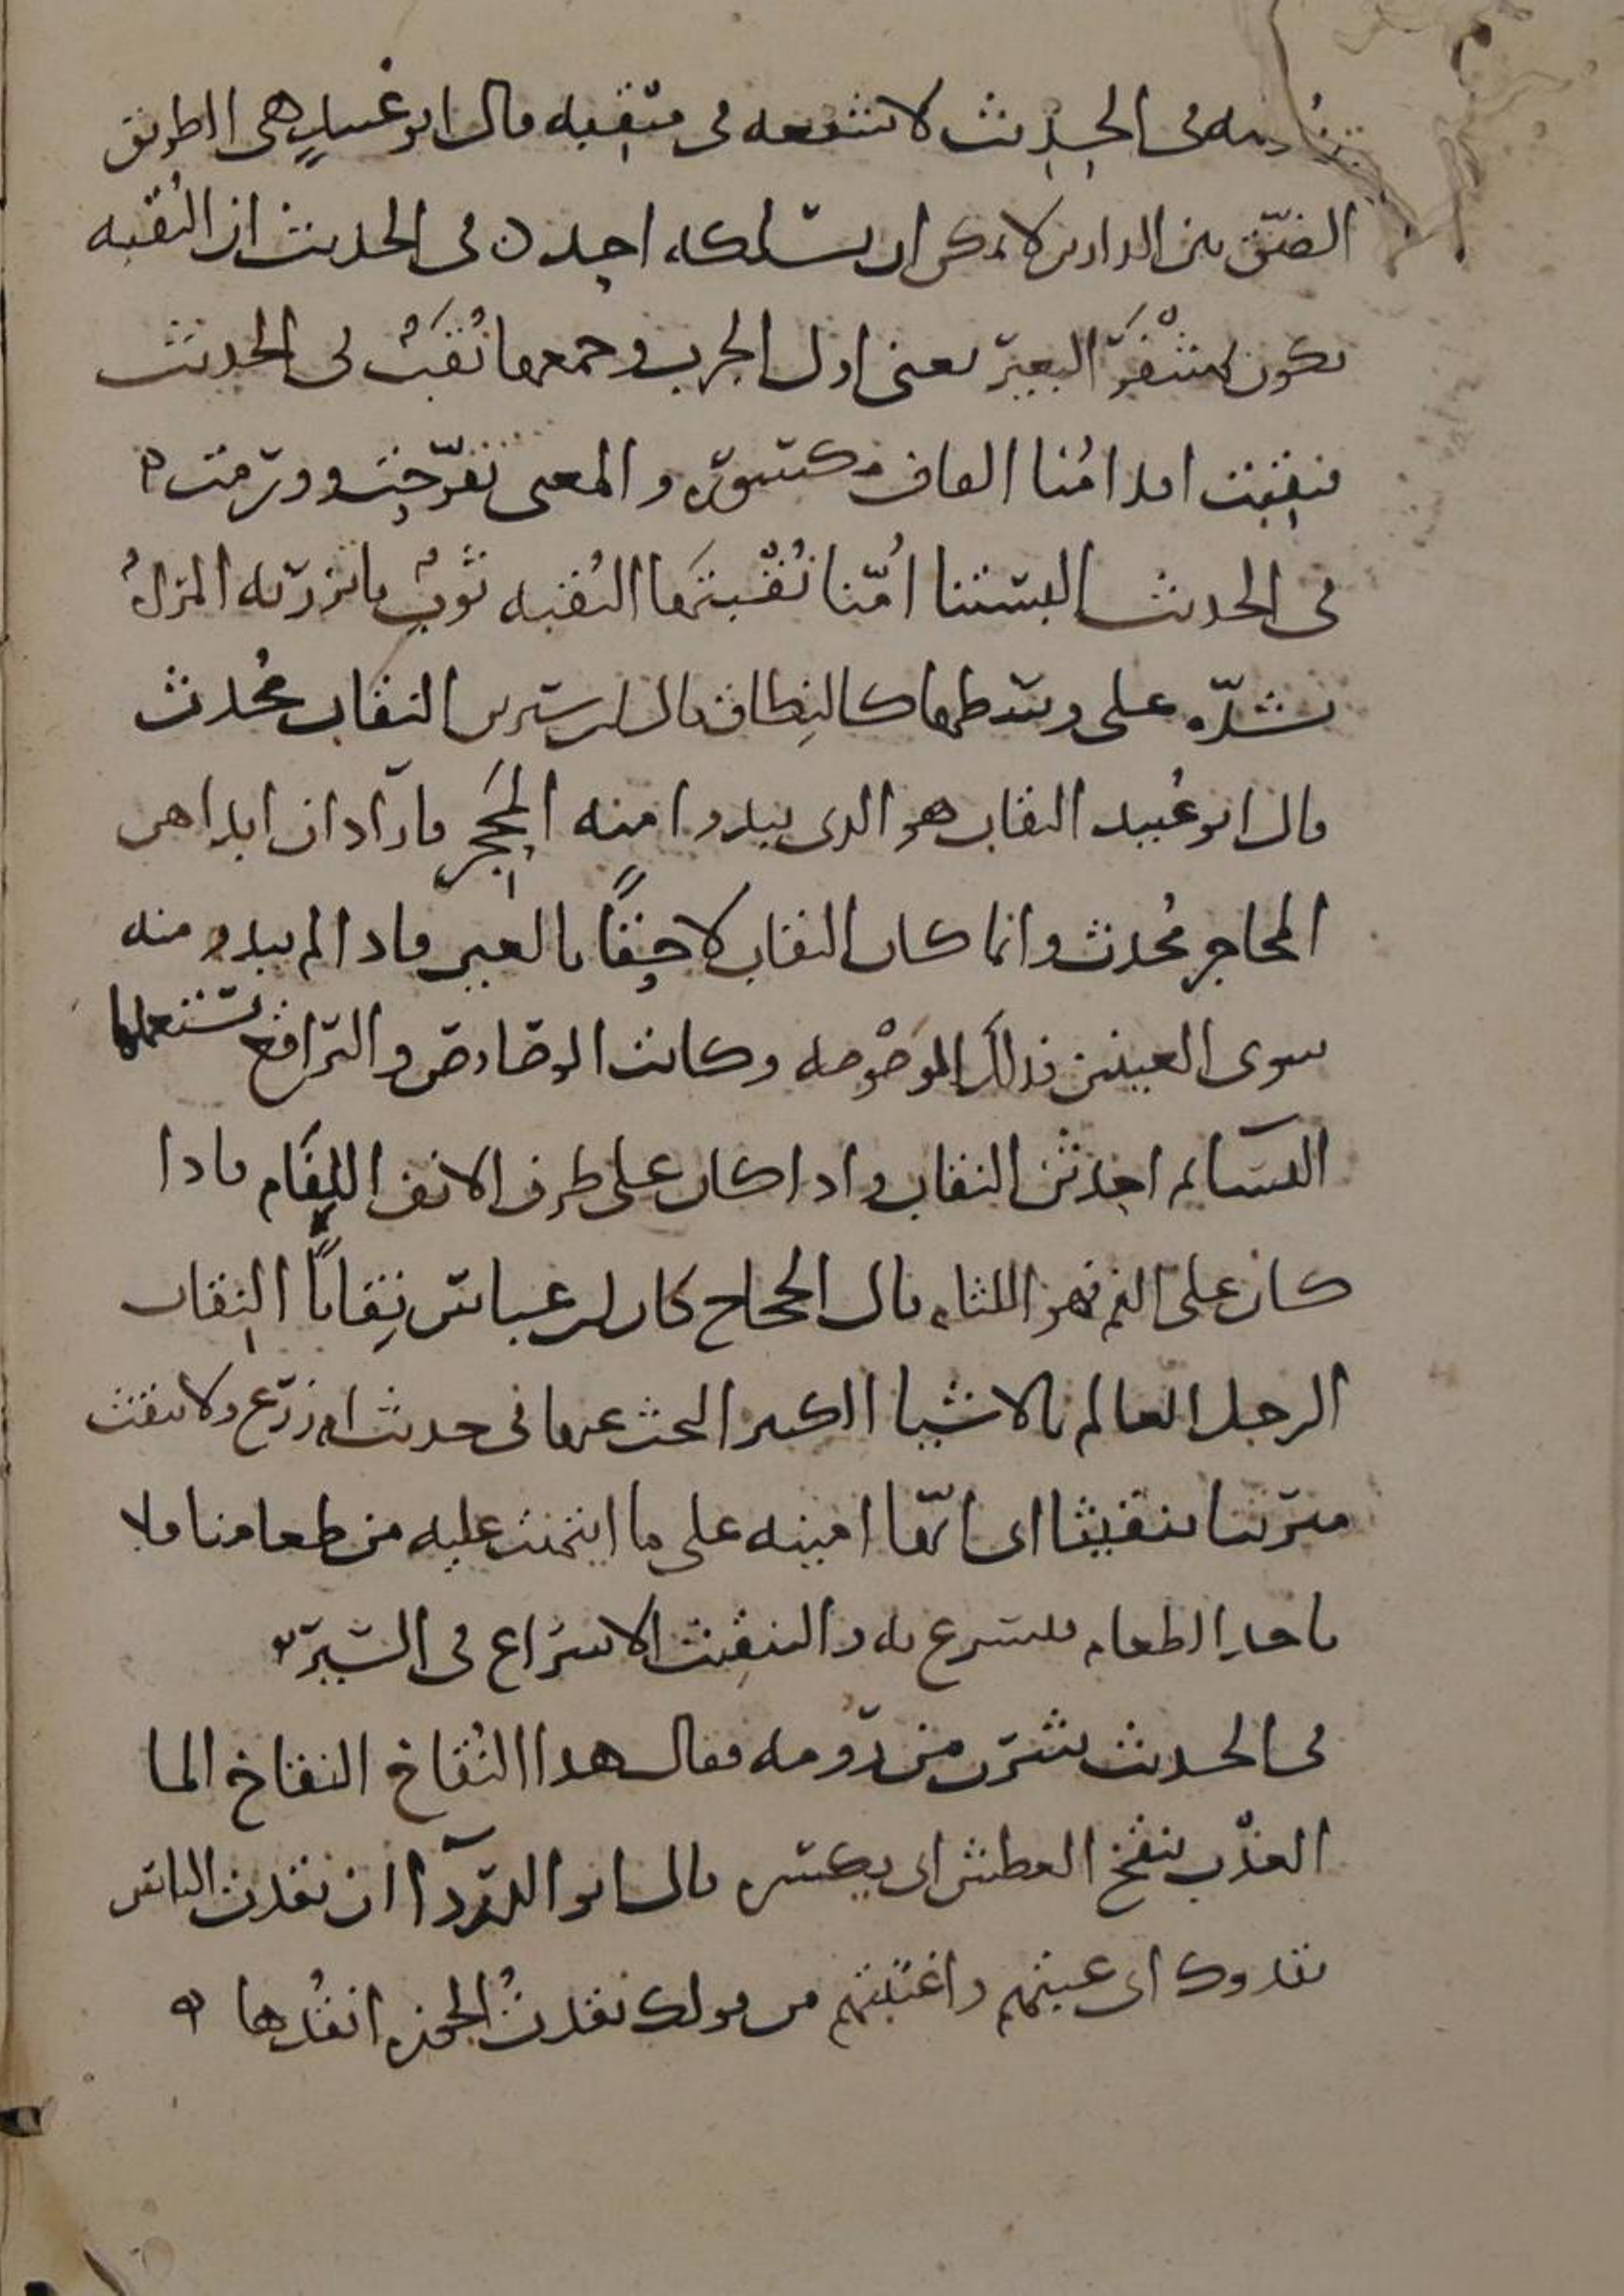 في الحديث لا شفعه في منقبه قال ابو عبيد هي الطريق
الضيق بين الدارين لا يمكن ان يسلكه احد في الحديث ان النقبه
تكون بمشفر البعير يعني اول الجرب وجمعها نقب في الحديث
فنقبت اقدامنا القاف مكسورة والمعنى تقرحت وورمت ه
في الحديث البستنا امنا نقبتها النقبه ثوب تاتزر به المراة
تشده على وسطها كالنطاق قال ابن سيرين النقاب محدث
قال ابو عبيد النقاب هو الذي يبدوا منه المحجر فاراد ان ابداهن
المحاجر محدث وانما كان النقاب لاحقا بالعين فاذا لم يبدو منه
سوى العينين فذلك الوصوصه وكانت الوصاوص والبراقع تستعملها
النسا ثم احدثن النقاب واذا كان على طرف الانف اللفام فاذا
كان على الفم فهو اللثام قال الحجاج كان ابن عباس نقابا النقاب
الرجل العالم بالاشيا الكثير البحث عنها في حديث ام زرع ولا تنقث
ميرتنا تنقيثا اي انها امينه على ما ايتمنت عليه من طعامنا فلا
تاخذ الطعام فتسرع به والتنقيث الاسراع في السير ه
في الحديث شرب من رومه فقال هذا النقاخ النقاخ الما
العذب ينقخ العطش اي يكسره قال ابو الدردآ ان نقدت الناس
نقدوك اي عبتهم واغتبتهم من قولك نقدت الجوزه انقدها ه